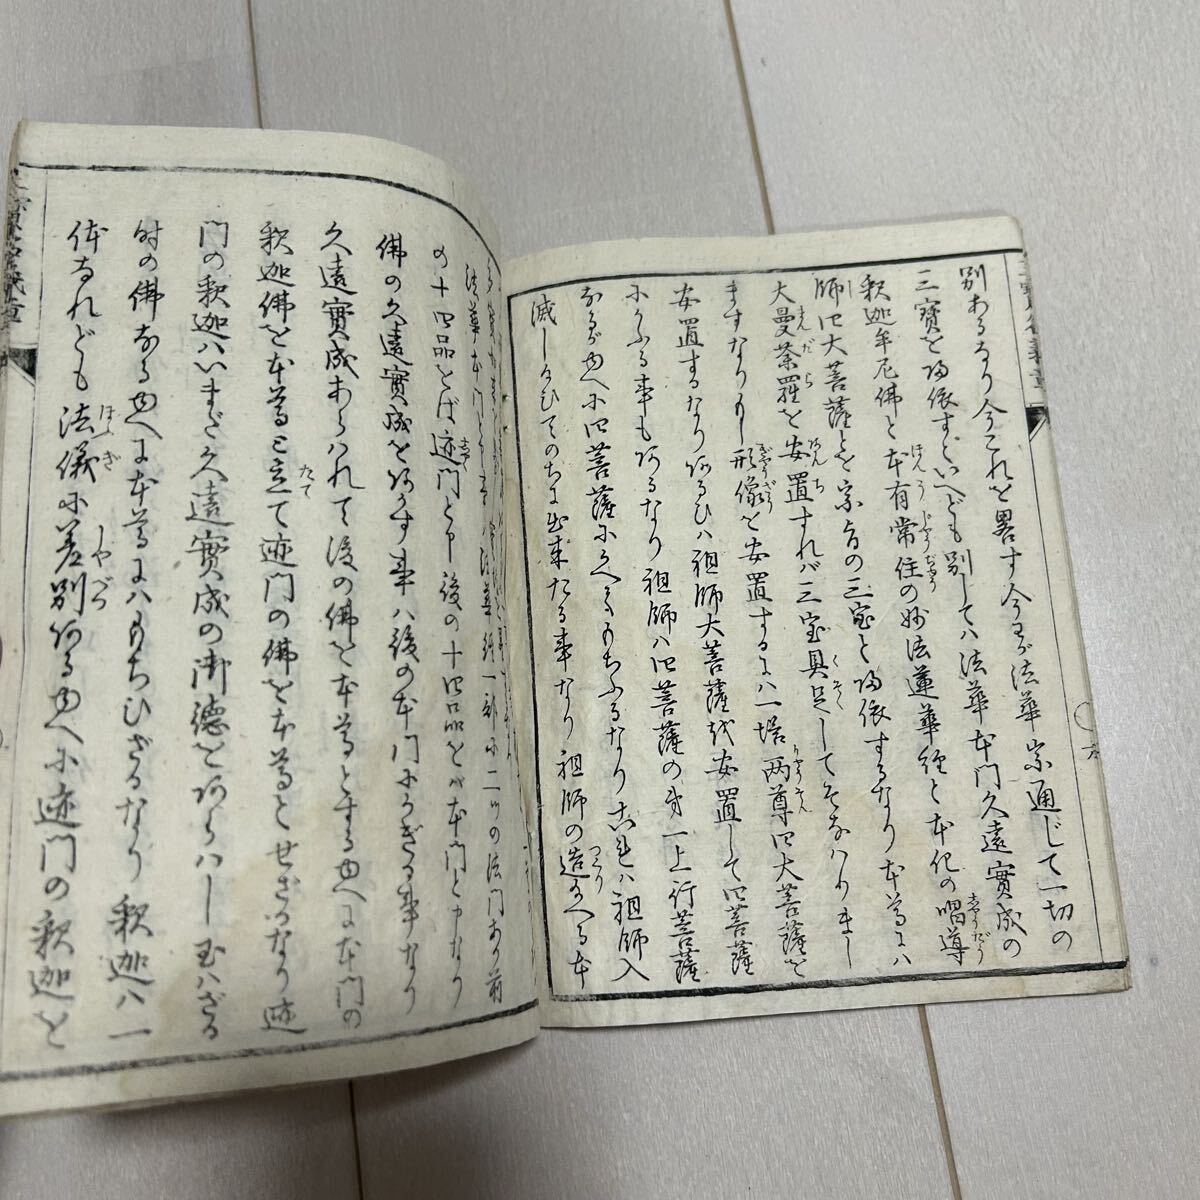 別あるなり今これを畧す今わが法華宗通じて一切の
三寳を歸依すといへども別しては法華本門久遠實成の
釈迦牟尼佛と本有常住の妙法蓮華経と本化の唱導
師四大菩薩とを宗旨の三宝と歸依するなり本尊には
大曼荼羅を安置すれば三宝具足してそなはりまし
ますなりもし形像を安置するには一塔両尊四大菩薩を
安置するなりあるひは祖師大菩薩を安置して四菩薩
にかふる事もあるなり祖師は四菩薩の第一上行菩薩
なるがゆへに四菩薩にかへもちふるなりこれは祖師入
滅し給ひてのちに出来たる事なり祖師の造り給へる本
法華経一部に二つの法門あり前
の十四品をば迹門と申後の十四品をば本門と申なり
佛の久遠實成をあかす事は後の本門にかぎる事なり
久遠實成あらはれて後の佛を本尊とするゆへに本門の
釈迦佛を本尊と立て迹門の佛を本尊とせざるなり迹
門の釈迦はいまだ久遠實成の御徳をあらはし玉はざる
時の佛なるゆへに本尊にはもちひざるなり釈迦は一
体なれども法儀に差別あるゆへに迹門の釈迦を